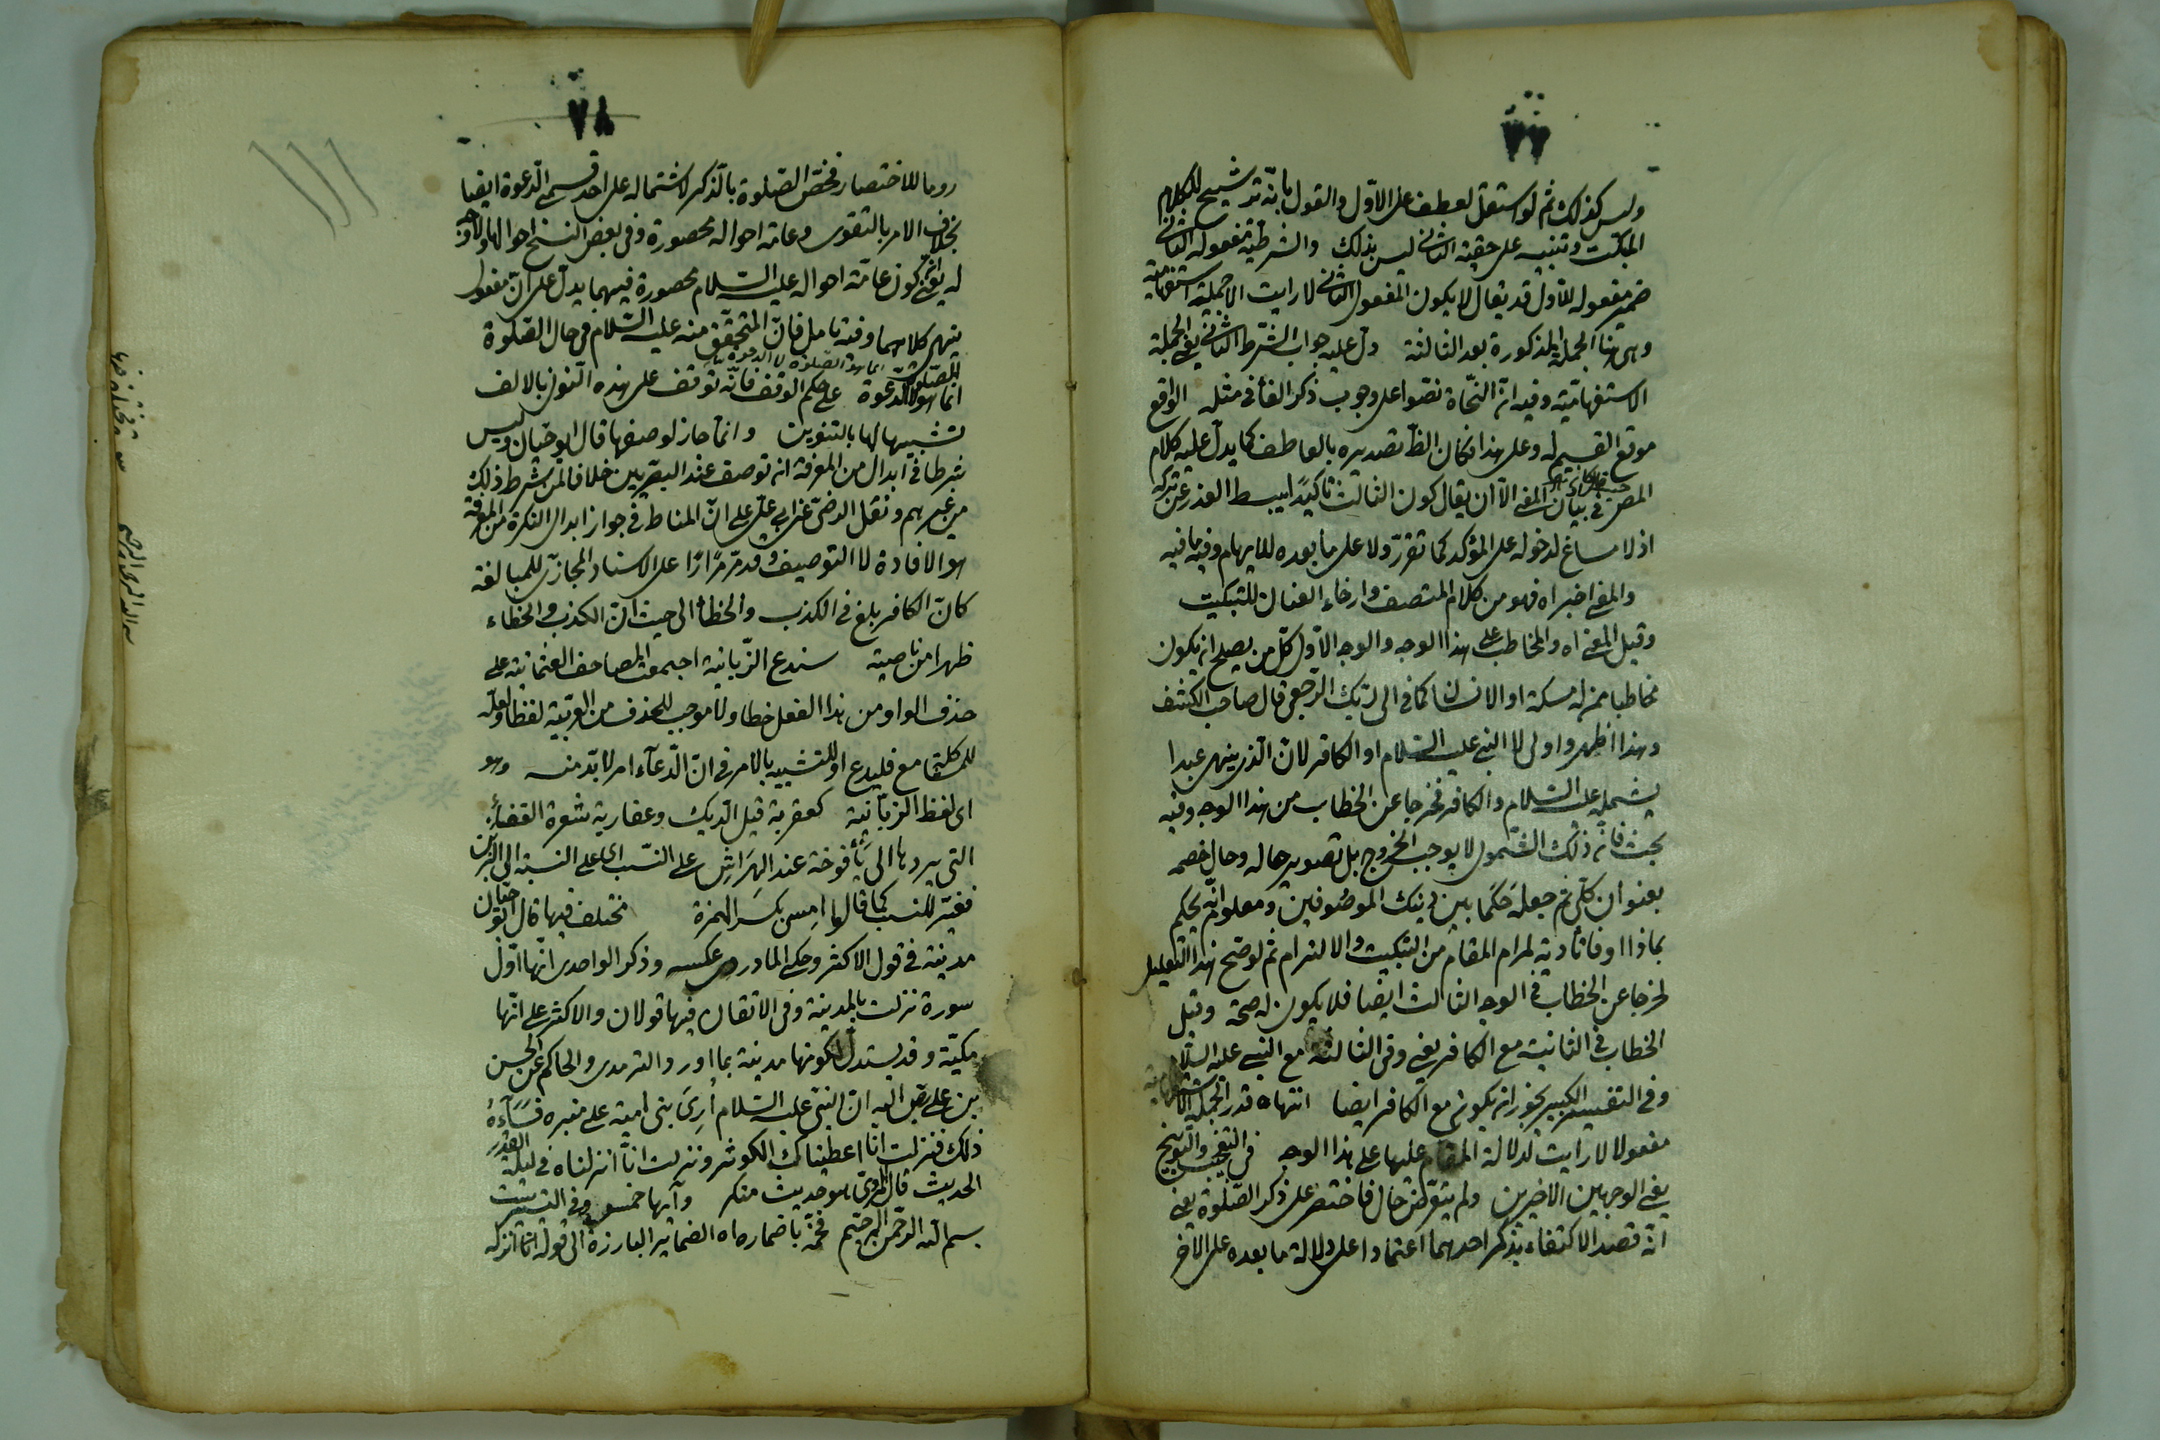 ٧٧
وليس كذلك ثم لو استقل لعطف على الاول والقول بانه ترشيح للكلام
المبكت وتنبيه على حقية الثاني ليس بذلك والشرطية مفعوله الثاني
ضمير مفعوله للاول قد يقال لا يكون المفعول الثاني لارايت الا جملة استفهامية
وهى هنا الجملة المذكورة بعد الثالثة دل عليه جواب الشرط الثاني يعني الجملة
الاستفهامية وفيه ان النحاة نصوا على وجوب ذكر الفاء في مثله الواقع
موقع القسيم له وعلى هذا فكان الظ تصديره بالعاطف كما يدل عليه كلام
المص في بيان المعنى الا ان يقال كون الثالث تاكيدا يبسط العذر عن تركه
اذ لا مساغ لدخوله على المؤكد كما تقرر ولا على ما بعده للايهام وفيه ما فيه
والمعنى اخبر اه فهو من كلام المنصف وارخاء العنان للتبكيت
وقيل المعنى اه والمخاطب على هذا الوجه والوجه الاول كل من يصلح ان يكون
مخاطبا ممن له مسكة او الانسان كما في الى ربك الرجعى قال صاحب الكشف
وهذا اظهر واولى لا النبي عليه السلام او الكافر لان الذي ينهى عبدا
يشمله عليه السلام والكافر فخرجا عن الخطاب من هذا الوجه وفيه
بحث فان ذلك الشمول لا يوجب الخروج بل تصوير حاله وحال خصمه
بعنوان كلي ثم جعله حكما بين ذينك الموصوفين ومعلوم انه يحكم
بماذا اوفى تأدية لمرام المقام من التبكيت والالزام ثم لو صح هذا التعليل
لخرجا عن الخطاب في الوجه الثالث ايضا فلا يكون له صحة وقيل
الخطاب في الثانية مع الكافر يعني وفي الثالثة مع النبي عليه السلام
وفي التفسير الكبير يجوز ان يكون مع الكافر ايضا انتهاه قدر الجملة الاستفهامية
مفعولا لارايت لدلالة المقام عليها على هذا الوجه في التعجيب والتوبيخ
يعني الوجهين الاخيرين ولم يتعرض حال فاختصر على ذكر الصلوة يعني
انه قصد الاكتفاء بذكر احدهما اعتمادا على دلالة ما بعده على الاخر
٧٨
روما للاختصار فخص الصلوة بالذكر لاشتماله على احد قسمي الدعوة ايضا
بخلاف الامر بالتقوى وعامة احواله محصورة وفي بعض النسخ احوالها
له يعني كون عامة احواله عليه السلام محصورة فيهما يدل على ان مفعول
ينهى كلاهما وفيه تامل فان المتحقق منه عليه السلام في حال الصلوة
انما هو الصلوة لا الدعوة على حكم الوقف فانه توقف على هذه النون بالالف
تشبيها لها بالتنوين وانما جاز لوصفها قال ابو حيان وليس
شرطا في ابدال من المعرفة ان توصف عند البصريين خلافا لمن شرط ذلك
من غيرهم ونقل الرضي عن ابي علي على ان المناط في جواز ابدال النكرة من المعرفة
هو الافادة لا التوصيف وقد مر مرارا على الاسناد المجازي للمبالغة
كان الكافر بلغ في الكذب والخطأ الى حيث ان الكذب والخطاء
ظهرا من ناصيته سندع الزبانية اجمعت المصاحف العثمانية على
حذف الواو من هذا الفعل خطا ولا موجب للحذف من العربية لفظا ولعله
للمشاكلة مع فليدع او للتشبيه بالامر في ان الدعاء امر لا بد منه وهو
اى لفظ الزبانية كعفرية قيل الديك وعفارية شعرة القفا
التي يردها الى يأفوخه عند الهراش على النسب اى على النسبة الى الزبن
فغير للنسب كما قالوا امسي بكسر الهمزة مختلف فيها قال ابو حيان
مدينة في قول الاكثر وحكى الماوردي عكسه وذكر الواحدى انها اول
سورة نزلت بالمدينة وفي الاتقان فيها قولان والاكثر على انها
مكية وقد يستدل لكونها مدينة بما اورد الترمدى والحاكم عن الحسن
بن علي رض الله ان النبي عليه السلام أُرِىَ بني امية على منبره فساءه
ذلك فنزلت انا اعطيناك الكوثر ونزلت انا انزلناه في ليلة القدر
الحديث قال المزي هو حديث منكر وآيها خمس وفي التيسير ست
بسم الله الرحمن الرحيم فخمه باضماره اه الضمائر البارزة الى قوله انما انزله